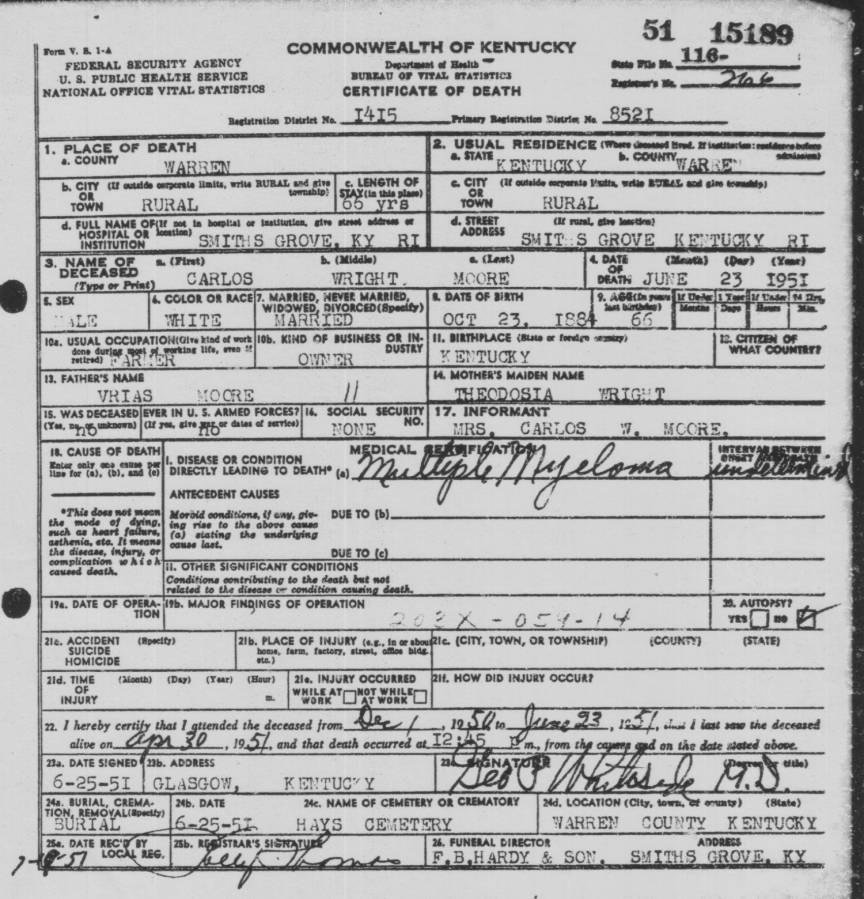 51 15189
Form V. S. 1-A
COMMONWEALTH OF KENTUCKY
FEDERAL SECURITY AGENCY
Department of Health
State File No. 116-
U. S. PUBLIC HEALTH SERVICE
BUREAU OF VITAL STATISTICS
Registrar's No. 266
NATIONAL OFFICE VITAL STATISTICS
CERTIFICATE OF DEATH
Registration District No. 1415 Primary Registration District No. 8521
1. PLACE OF DEATH
a. COUNTY WARREN
2. USUAL RESIDENCE (Where deceased lived. If institution: residence before admission)
a. STATE KENTUCKY b. COUNTY WARREN
b. CITY (If outside corporate limits, write RURAL and give township)
OR
TOWN RURAL
c. LENGTH OF
STAY (in this place)
66 yrs
c. CITY (If outside corporate limits, write RURAL and give township)
OR
TOWN RURAL
d. FULL NAME OF (If not in hospital or institution, give street address or location)
HOSPITAL OR
INSTITUTION SMITHS GROVE, KY RI
d. STREET (If rural, give location)
ADDRESS SMITHS GROVE KENTUCKY RI
3. NAME OF
DECEASED
(Type or Print)
a. (First) b. (Middle) c. (Last)
CARLOS WRIGHT. MOORE
4. DATE (Month) (Day) (Year)
OF
DEATH JUNE 23 1951
5. SEX
MALE
6. COLOR OR RACE
WHITE
7. MARRIED, NEVER MARRIED,
WIDOWED, DIVORCED (Specify)
MARRIED
8. DATE OF BIRTH
OCT 23, 1884
9. AGE (In years last birthday)
66
If Under 1 Year
Months Days
If Under 24 Hrs.
Hours Min.
10a. USUAL OCCUPATION (Give kind of work
done during most of working life, even if
retired) FARMER
10b. KIND OF BUSINESS OR IN-
DUSTRY
OWNER
11. BIRTHPLACE (State or foreign country)
KENTUCKY
12. CITIZEN OF
WHAT COUNTRY?
13. FATHER'S NAME
VRIAS MOORE 11
14. MOTHER'S MAIDEN NAME
THEODOSIA WRIGHT
15. WAS DECEASED EVER IN U. S. ARMED FORCES?
(Yes, no, or unknown) (If yes, give war or dates of service)
no no
16. SOCIAL SECURITY
NO.
NONE
17. INFORMANT
MRS. CARLOS W. MOORE.
18. CAUSE OF DEATH
Enter only one cause per
line for (a), (b), and (c)
MEDICAL CERTIFICATION
I. DISEASE OR CONDITION
DIRECTLY LEADING TO DEATH* (a) Multiple Myeloma
INTERVAL BETWEEN
ONSET AND DEATH
undetermined
*This does not mean
the mode of dying,
such as heart failure,
asthenia, etc. It means
the disease, injury, or
complication which
caused death.
ANTECEDENT CAUSES
Morbid conditions, if any, giv-
ing rise to the above cause
(a) stating the underlying
cause last.
DUE TO (b)
DUE TO (c)
II. OTHER SIGNIFICANT CONDITIONS
Conditions contributing to the death but not
related to the disease or condition causing death.
19a. DATE OF OPERA-
TION
19b. MAJOR FINDINGS OF OPERATION
203X-059-14
20. AUTOPSY?
YES NO
21a. ACCIDENT (Specify)
SUICIDE
HOMICIDE
21b. PLACE OF INJURY (e.g., in or about
home, farm, factory, street, office bldg.
etc.)
21c. (CITY, TOWN, OR TOWNSHIP) (COUNTY) (STATE)
21d. TIME (Month) (Day) (Year) (Hour)
OF
INJURY m.
21e. INJURY OCCURRED
WHILE AT NOT WHILE
WORK AT WORK
21f. HOW DID INJURY OCCUR?
22. I hereby certify that I attended the deceased from Dec 1, 1950 to June 23, 1951, that I last saw the deceased
alive on Apr 30, 1951, and that death occurred at 12:45 P m., from the causes and on the date stated above.
23a. DATE SIGNED
6-25-51
23b. ADDRESS
GLASGOW, KENTUCKY
23c. SIGNATURE (Degree or title)
Geo P Whiteside M.D.
24a. BURIAL, CREMA-
TION, REMOVAL (Specify)
BURIAL
24b. DATE
6-25-51
24c. NAME OF CEMETERY OR CREMATORY
HAYS CEMETERY
24d. LOCATION (City, town, or county) (State)
WARREN COUNTY KENTUCKY
25a. DATE REC'D BY
LOCAL REG.
25b. REGISTRAR'S SIGNATURE
Thomas
26. FUNERAL DIRECTOR ADDRESS
F.B.HARDY & SON. SMITHS GROVE, KY